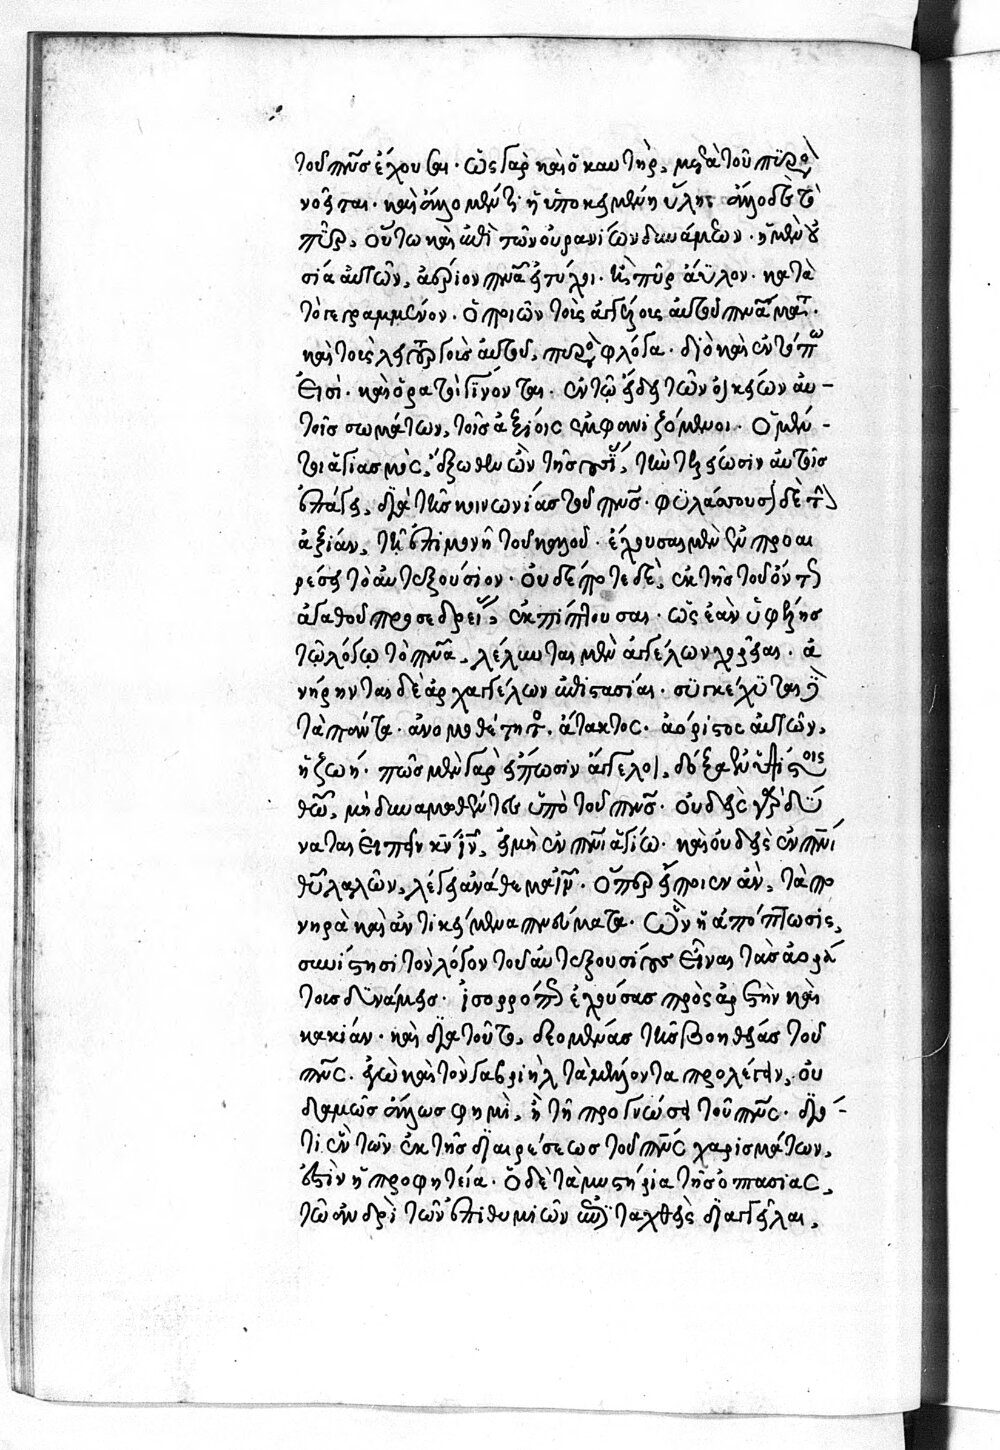 τοῦ πν̅ς ἔχουσαι· ὡς γὰρ καὶ ὁ καυτὴρ, μετὰ τοῦ πυρὸς
νοεῖται· καὶ ἄλλο μέν τι ἡ ὑποκειμένη ὕλη, ἄλλο δὲ τὸ
πῦρ, οὕτω καὶ ἐπὶ τῶν οὐρανίων δυνάμεων· ἡ μὲν οὐ
σία αὐτῶν, ἀέριον πν̅α εἰ τύχοι· ἢ πῦρ ἄϋλον· κατὰ
τὸ γεγραμμένον· ὁ ποιῶν τοὺς ἀγγέλους αὐτοῦ πν̅ατα·
καὶ τοὺς λειτουργοὺς αὐτοῦ, πυρὸς φλόγα· διὸ καὶ ἐν τόπῳ
εἰσὶ· καὶ ὁρατοὶ γίνονται· ἐν τῷ εἴδει τῶν οἰκείων αὐ-
τοῖς σωμάτων, τοῖς ἀξίοις ἐμφανιζόμενοι· ὁ μέν-
τοι ἁγιασμὸς, ἔξωθεν ὢν τῆς οὐσίας, τὴν τελείωσιν αὐτοῖς
ἐπάγει, διὰ τῆς κοινωνίας τοῦ πν̅ς· φυλάσσουσι δὲ τὴν
ἀξίαν, τῇ ἐπιμονῇ τοῦ καλοῦ· ἔχουσαι μὲν ἐν προαι
ρέσει τὸ αὐτεξούσιον· οὐδέποτε δὲ, ἐκ τῆς τοῦ ὄντως
ἀγαθοῦ προσεδρείας, ἐκπίπτουσαι· ὡς ἐὰν ὑφέλῃς
τῷ λόγῳ τὸ πν̅α, λέλυνται μὲν ἀγγέλων χορεῖαι· ἀ
νῄρηνται δὲ ἀρχαγγέλων ἐπιστασίαι· συγκέχυται δὲ
τὰ πάντα· ἀνομοθέτητος, ἄτακτος, ἀόριστος αὐτῶν,
ἡ ζωή· πῶς μὲν γὰρ εἴπωσιν ἄγγελοι, δόξα ἐν ὑψίστοις
θεῷ, μὴ δυναμωθέντες ὑπὸ τοῦ πν̅ς· οὐδεὶς γὰρ δύ
ναται εἰπεῖν κ̅ν ι̅ν, εἰ μὴ ἐν πν̅ι ἁγίῳ· καὶ οὐδεὶς ἐν πν̅ι
θ̅υ λαλῶν, λέγει ἀνάθεμα ι̅ν· ὅπερ εἴποιεν ἂν, τὰ πο
νηρὰ καὶ ἀντικείμενα πνεύματα· ὧν ἡ ἀπόπτωσις,
συνίστησι τὸν λόγον τοῦ αὐτεξουσίους εἶναι τὰς ἀορά
τους δυνάμεις· ἰσορρόπως ἐχούσας πρὸς ἀρετὴν καὶ
κακίαν· καὶ διὰ τοῦτο, δεομένας τῆς βοηθείας τοῦ
πν̅ς. ἐγὼ καὶ τὸν γαβριὴλ τὰ μέλλοντα προλέγειν, οὐ
δαμῶς ἄλλως φημὶ, ἢ τῇ προγνώσει τοῦ πν̅ς· διό-
τι ἓν τῶν ἐκ τῆς διαιρέσεως τοῦ πν̅ς χαρισμάτων,
ἐστὶν ἡ προφητεία· ὁ δὲ τὰ μυστήρια τῆς ὀπτασίας,
τῷ ἀνδρὶ τῶν ἐπιθυμιῶν ἐπιταχθεὶς διαγγεῖλαι,